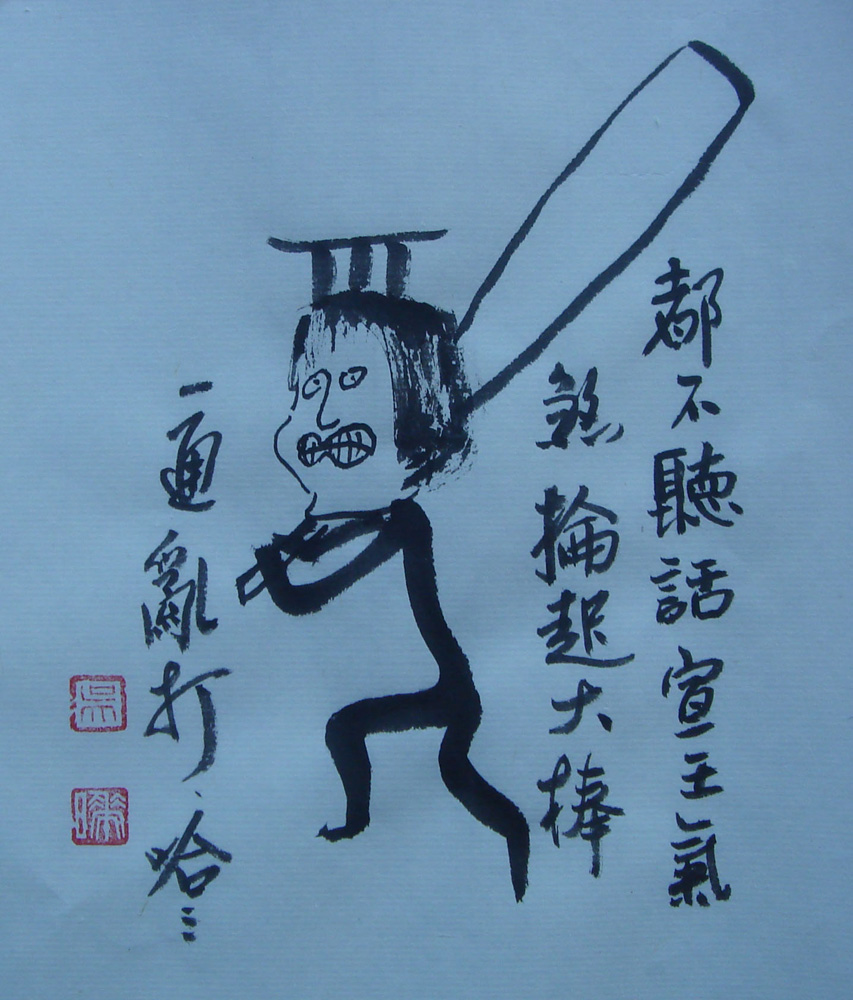 都不聽話宣王氣
煞掄起大棒
一通亂打哈::